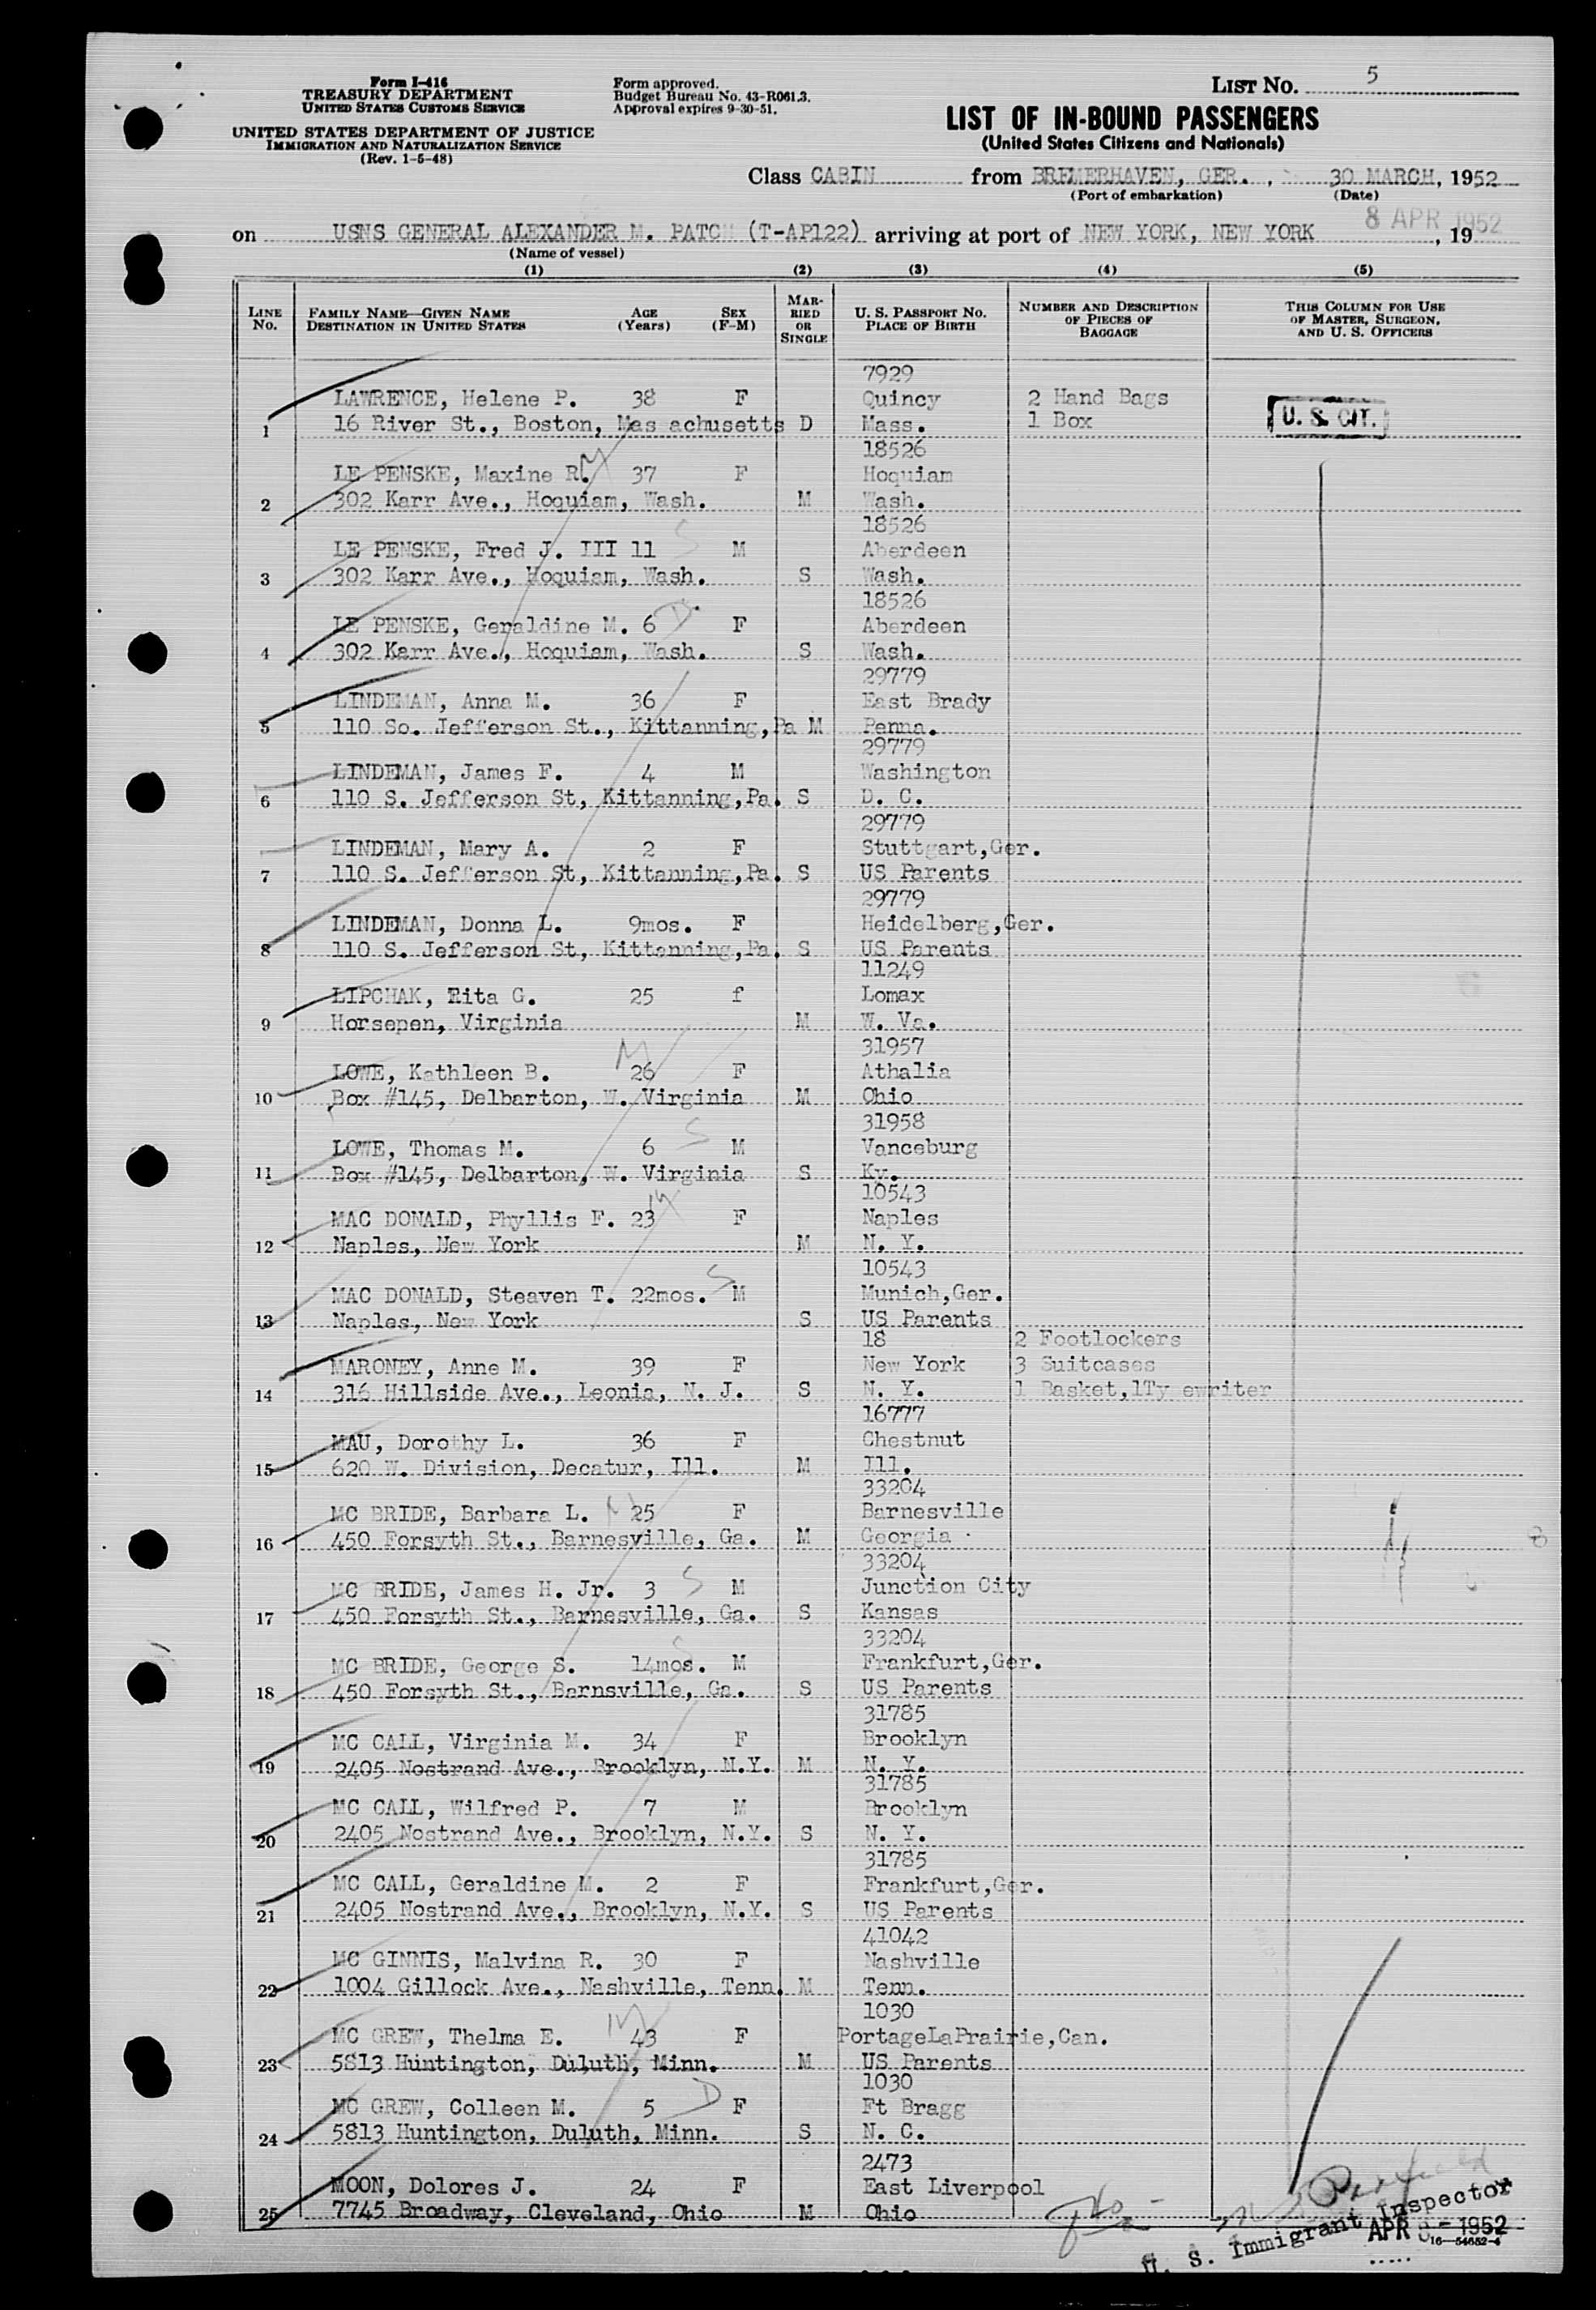 Form I-416
TREASURY DEPARTMENT
UNITED STATES CUSTOMS SERVICE
UNITED STATES DEPARTMENT OF JUSTICE
IMMIGRATION AND NATURALIZATION SERVICE
(Rev. 1-5-48)
Form approved.
Budget Bureau No. 43-R061.3.
Approval expires 9-30-51.
LIST NO. 5
LIST OF IN-BOUND PASSENGERS
(United States Citizens and Nationals)
Class CABIN from BREMERHAVEN, GER., 30 MARCH, 1952
(Port of embarkation) (Date)
on USNS GENERAL ALEXANDER M. PATCH (T-AP122) arriving at port of NEW YORK, NEW YORK 8 APR 1952, 19
(Name of vessel)
(1) (2) (3) (4) (5)
LINE NO.
FAMILY NAME—GIVEN NAME AGE (Years) SEX (F-M)
DESTINATION IN UNITED STATES
MARRIED OR SINGLE
U. S. PASSPORT NO.
PLACE OF BIRTH
NUMBER AND DESCRIPTION OF PIECES OF BAGGAGE
THIS COLUMN FOR USE OF MASTER, SURGEON, AND U. S. OFFICERS
7929
LAWRENCE, Helene P. 38 F Quincy 2 Hand Bags
1 16 River St., Boston, Mas achusetts D Mass. 1 Box U. S. CIT.
18526
LE PENSKE, Maxine R. M 37 F Hoquiam
2 302 Karr Ave., Hoquiam, Wash. M Wash.
18526
LE PENSKE, Fred J. III 11 S M Aberdeen
3 302 Karr Ave., Hoquiam, Wash. S Wash.
18526
LE PENSKE, Geraldine M. 6 D. F Aberdeen
4 302 Karr Ave., Hoquiam, Wash. S Wash.
29779
LINDEMAN, Anna M. 36 F East Brady
5 110 So. Jefferson St., Kittanning, Pa M Penna.
29779
LINDEMAN, James F. 4 M Washington
6 110 S. Jefferson St, Kittanning, Pa. S D. C.
29779
LINDEMAN, Mary A. 2 F Stuttgart, Ger.
7 110 S. Jefferson St, Kittanning, Pa. S US Parents
29779
LINDEMAN, Donna L. 9mos. F Heidelberg, Ger.
8 110 S. Jefferson St, Kittanning, Pa. S US Parents
11249
LIPCHAK, Rita G. 25 f Lomax
9 Horsepen, Virginia M W. Va.
31957
LOWE, Kathleen B. M 26 F Athalia
10 Box #145, Delbarton, W. Virginia M Ohio
31958
LOWE, Thomas M. 6 S M Vanceburg
11 Box #145, Delbarton, W. Virginia S Ky.
10543
MAC DONALD, Phyllis F. 23 M F Naples
12 Naples, New York M N. Y.
10543
MAC DONALD, Steaven T. 22mos. S M Munich, Ger.
13 Naples, New York S US Parents
18 2 Footlockers
MARONEY, Anne M. 39 F New York 3 Suitcases
14 316 Hillside Ave., Leonia, N. J. S N. Y. 1 Basket, 1Ty ewriter
16777
MAU, Dorothy L. 36 F Chestnut
15 620 W. Division, Decatur, Ill. M Ill.
33204
MC BRIDE, Barbara L. M 25 F Barnesville
16 450 Forsyth St., Barnesville, Ga. M Georgia
33204
MC BRIDE, James H. Jr. 3 S M Junction City
17 450 Forsyth St., Barnesville, Ga. S Kansas
33204
MC BRIDE, George S. 14mos. S M Frankfurt, Ger.
18 450 Forsyth St., Barnsville, Ga. S US Parents
31785
MC CALL, Virginia M. 34 F Brooklyn
19 2405 Nostrand Ave., Brooklyn, N.Y. M N. Y.
31785
MC CALL, Wilfred P. 7 M Brooklyn
20 2405 Nostrand Ave., Brooklyn, N.Y. S N. Y.
31785
MC CALL, Geraldine M. 2 F Frankfurt, Ger.
21 2405 Nostrand Ave., Brooklyn, N.Y. S US Parents
41042
MC GINNIS, Malvina R. 30 F Nashville
22 1004 Gillock Ave., Nashville, Tenn. M Tenn.
1030
MC GREW, Thelma E. M 43 F PortageLaPrairie, Can.
23 5813 Huntington, Duluth, Minn. M US Parents
1030
MC GREW, Colleen M. 5 D F Ft Bragg
24 5813 Huntington, Duluth, Minn. S N. C.
2473
MOON, Dolores J. 24 F East Liverpool
25 7745 Broadway, Cleveland, Ohio M Ohio
U. S. Immigrant Inspector
APR 8 - 1952
16—54652-4